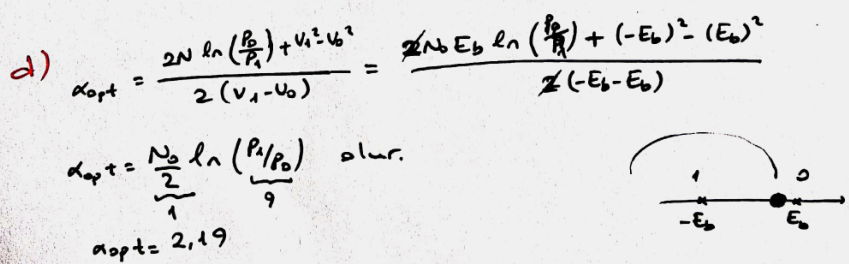 d) αopt = (2N ln(P0/P1) + V1² - V0²) / (2(V1 - V0)) = (2N0 Eb ln(P0/P1) + (-Eb)² - (Eb)²) / (2(-Eb - Eb))
αopt = N0/2 ln(P1/P0) olur.
1 9
αopt = 2,19
1 0
-Eb Eb